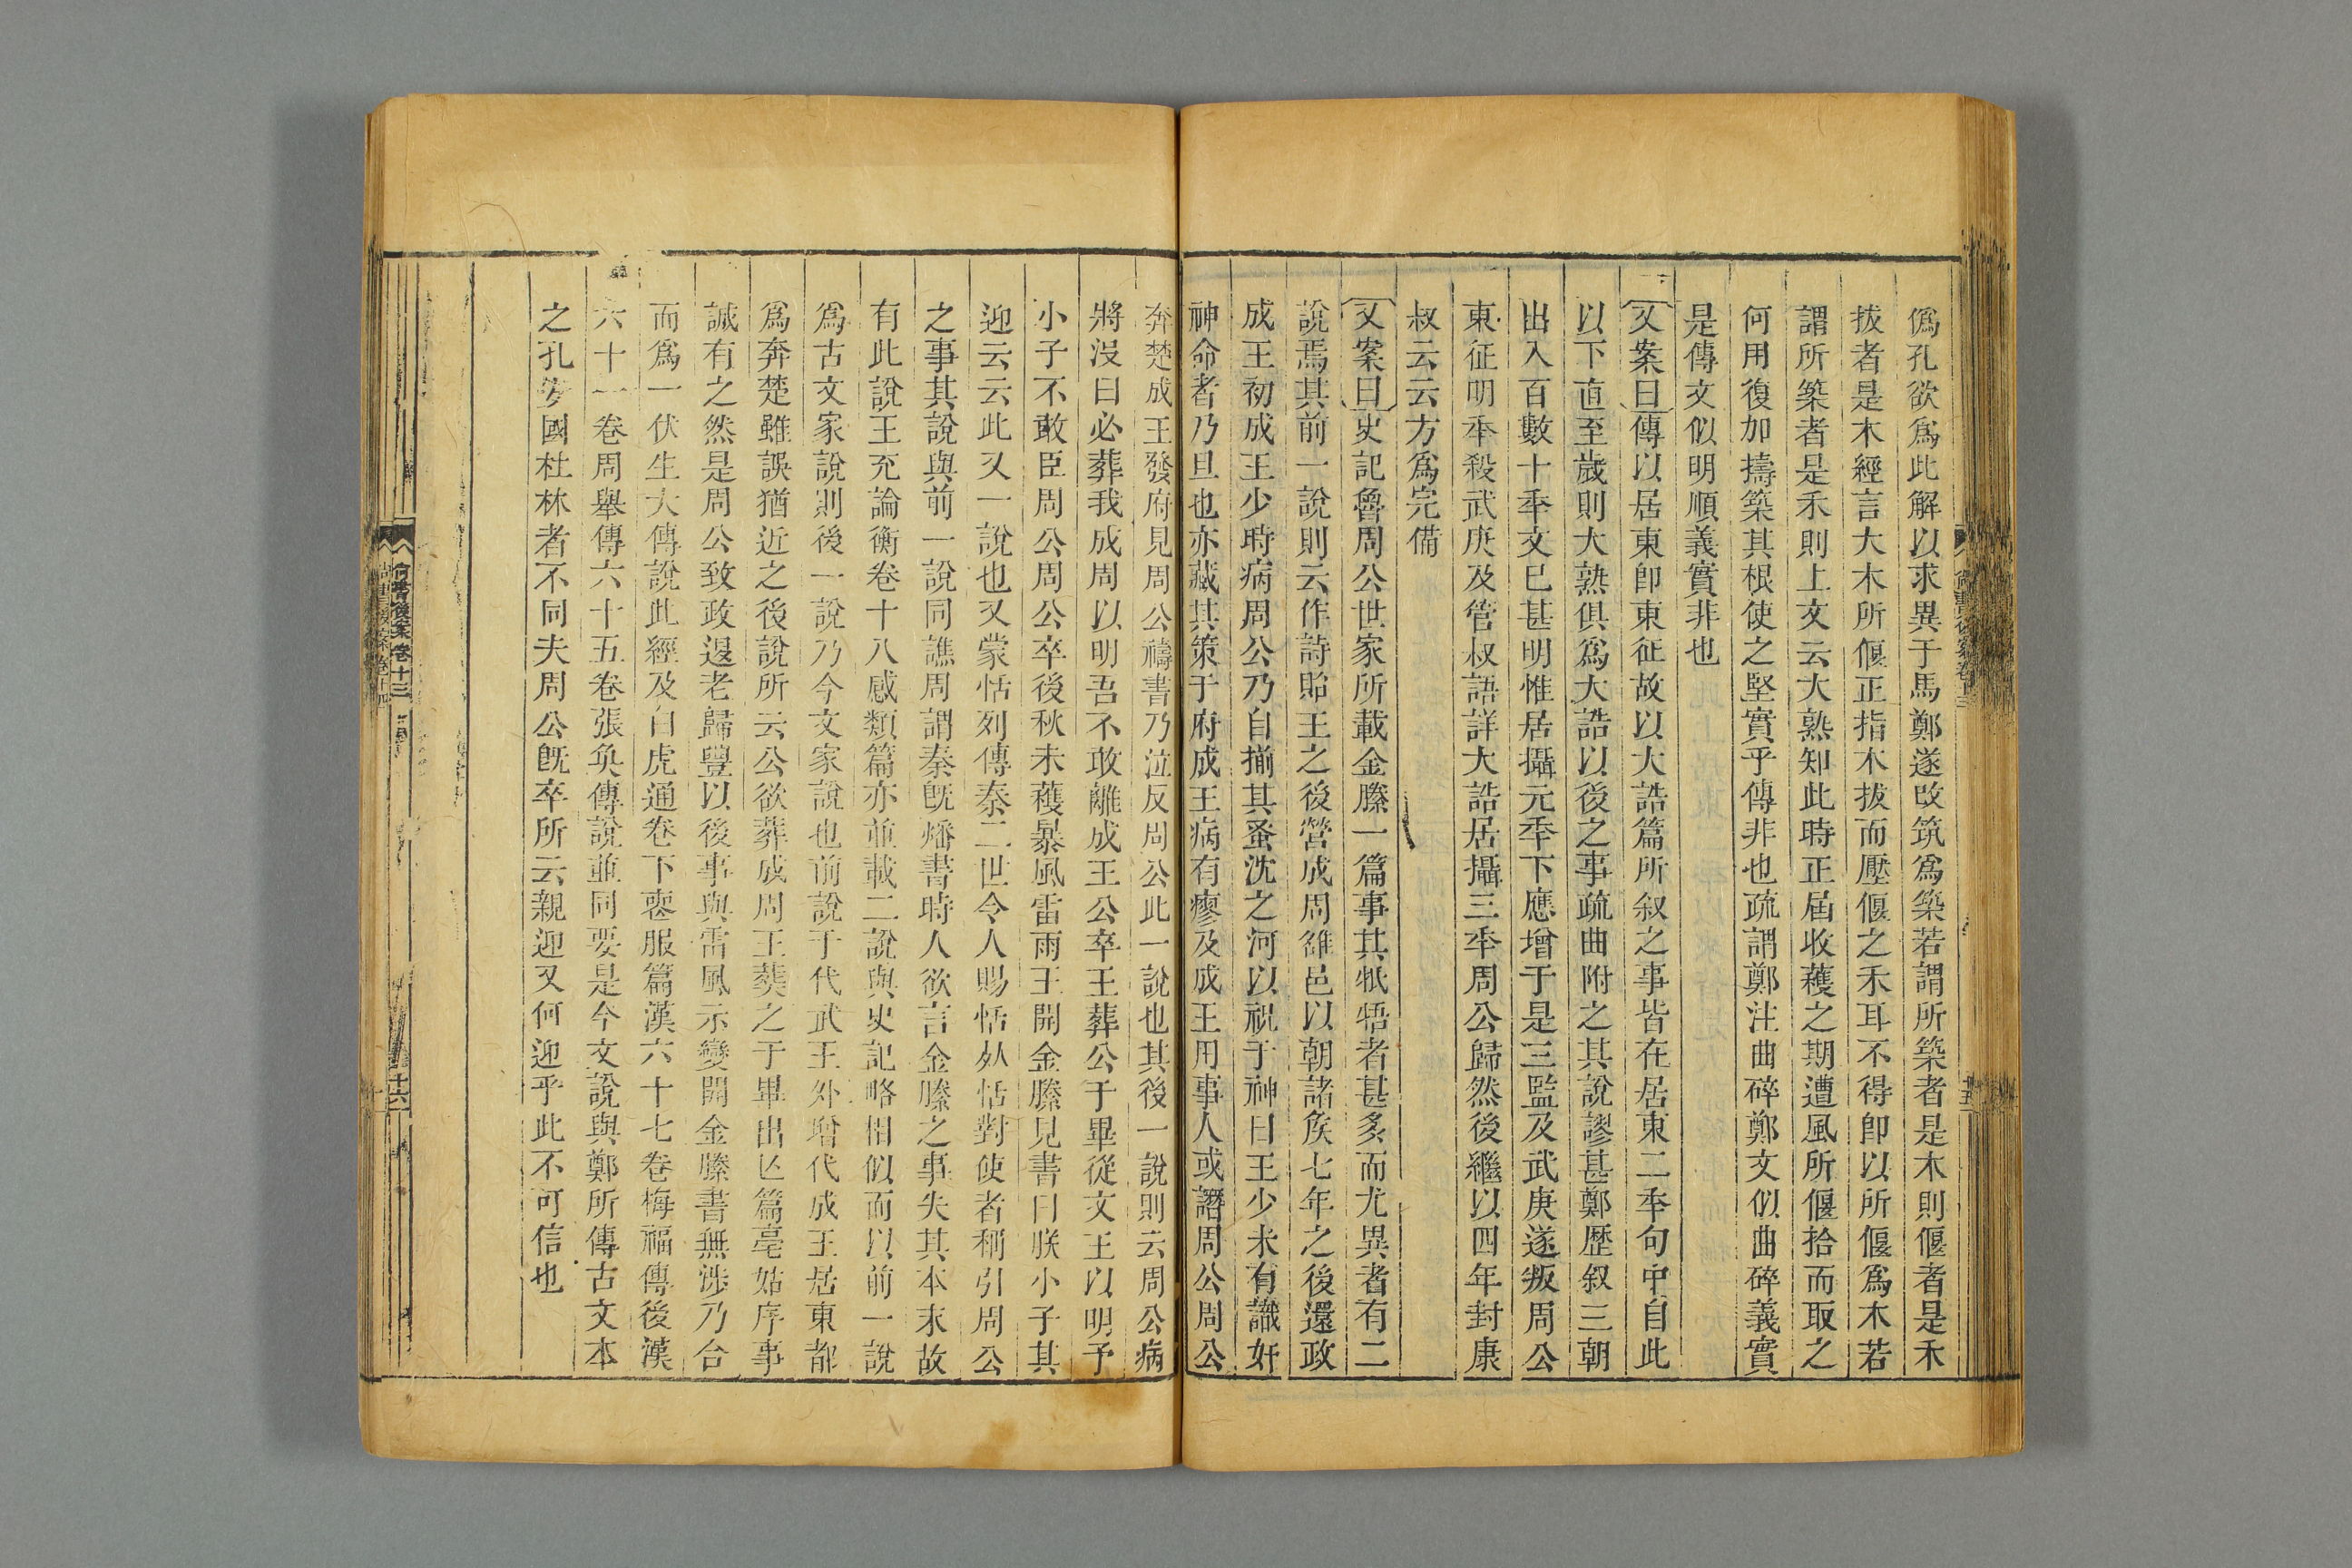 僞孔欲爲此解以求異于馬鄭遂改筑爲築若謂所築者是木則偃者是禾
拔者是木經言大木所偃正指木拔而壓偃之禾耳不得卽以所偃爲木若
謂所築者是禾則上文云大熟知此時正屆收穫之期遭風所偃拾而取之
何用復加擣築其根使之堅實乎傳非也疏謂鄭注曲碎鄭文似曲碎義實
是傳文似明順義實非也
又案曰傳以居東卽東征故以大誥篇所叙之事皆在居東二秊句中自此
以下直至歲則大熟俱爲大誥以後之事疏曲附之其說謬甚鄭歷叙三朝
出入百數十秊文已甚明惟居攝元秊下應增于是三監及武庚遂叛周公
東征明秊殺武庚及管叔語詳大誥居攝三秊周公歸然後繼以四年封康
叔云云方爲完備
又案曰史記魯周公世家所載金縢一篇事其牴牾者甚多而尤異者有二
說焉其前一說則云作詩貽王之後營成周雒邑以朝諸矦七年之後還政
成王初成王少時病周公乃自揃其蚤沈之河以祝于神曰王少未有識奸
神命者乃旦也亦藏其策于府成王病有瘳及成王用事人或譖周公周公
奔楚成王發府見周公禱書乃泣反周公此一說也其後一說則云周公病
將沒曰必葬我成周以明吾不敢離成王公卒王葬公于畢從文王以明予
小子不敢臣周公周公卒後秋未穫暴風雷雨王開金縢見書曰朕小子其
迎云云此又一說也又蒙恬列傳秦二世令人賜恬死恬對使者稱引周公
之事其說與前一說同譙周謂秦旣燔書時人欲言金縢之事失其本末故
有此說王充論衡卷十八感類篇亦並載二說與史記略相似而以前一說
爲古文家說則後一說乃今文家說也前說于代武王外增代成王居東都
爲奔楚雖誤猶近之後說所云公欲葬成周王葬之于畢出亾篇亳姑序事
誠有之然是周公致政退老歸豐以後事與雷風示變開金縢書無涉乃合
而爲一伏生大傳說此經及白虎通卷下喪服篇漢六十七卷梅福傳後漢
六十一卷周舉傳六十五卷張奐傳說並同要是今文說與鄭所傳古文本
之孔安國杜林者不同夫周公旣卒所云親迎又何迎乎此不可信也
尙書後案卷十三
十六